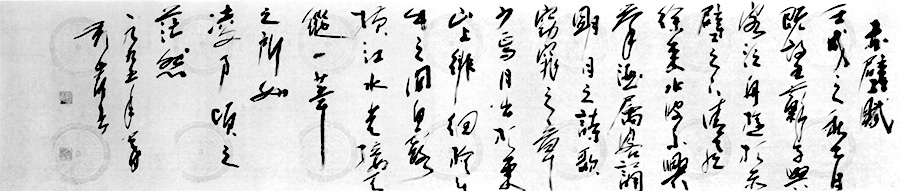 赤壁賦
壬戌之秋七月
既望蘇子與
客泛舟遊於赤
壁之下清風
徐來水波不興
舉酒屬客誦
明月之詩歌
窈窕之章
少焉月出於東
山上徘徊於斗
牛之間白露
橫江水光接天
縱一葦
之所如
凌万頃之
茫然